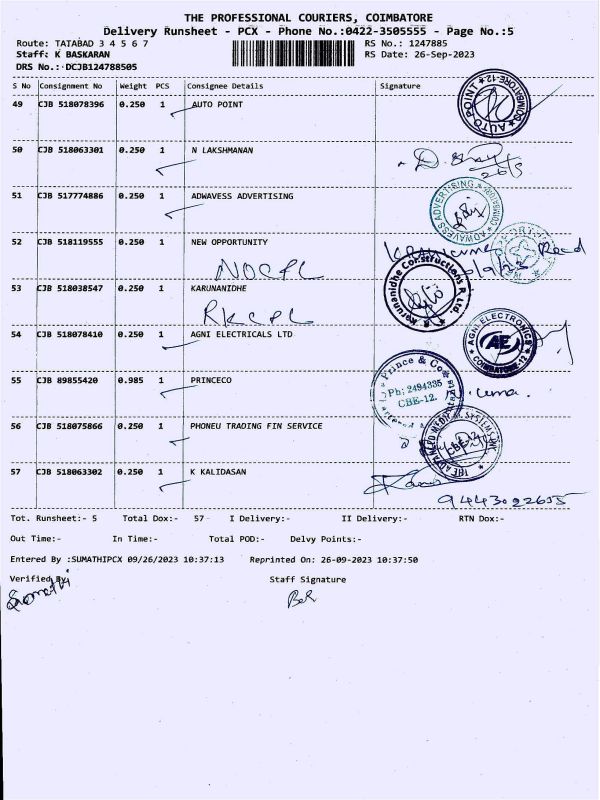 THE PROFESSIONAL COURIERS, COIMBATORE
Delivery Runsheet - PCX - Phone No.:0422-3505555 - Page No.:5
Route: TATABAD 3 4 5 6 7 RS No.: 1247885
Staff: K BASKARAN RS Date: 26-Sep-2023
DRS No.: DCJB124788505
S No Consignment No Weight PCS Consignee Details Signature
49 CJB 518078396 0.250 1 AUTO POINT
AUTO POINT COIMBATORE-12
50 CJB 518063301 0.250 1 N LAKSHMANAN
51 CJB 517774886 0.250 1 ADWAVESS ADVERTISING
ADWAVESS ADVERTISING
52 CJB 518119555 0.250 1 NEW OPPORTUNITY
NOCPL
53 CJB 518038547 0.250 1 KARUNANIDHE
Karunanidhe Constructions P. Ltd.
RKCPL
54 CJB 518078410 0.250 1 AGNI ELECTRICALS LTD
AGNI ELECTRONICS AE COIMBATORE-12
55 CJB 89855420 0.985 1 PRINCECO
Prince & Co
Ph: 2494335
CBE-12.
uma.
56 CJB 518075866 0.250 1 PHONEU TRADING FIN SERVICE
57 CJB 518063302 0.250 1 K KALIDASAN
9443022655
Tot. Runsheet:- 5 Total Dox:- 57 I Delivery:- II Delivery:- RTN Dox:-
Out Time:- In Time:- Total POD:- Delvy Points:-
Entered By :SUMATHIPCX 09/26/2023 10:37:13 Reprinted On: 26-09-2023 10:37:50
Verified By Staff Signature